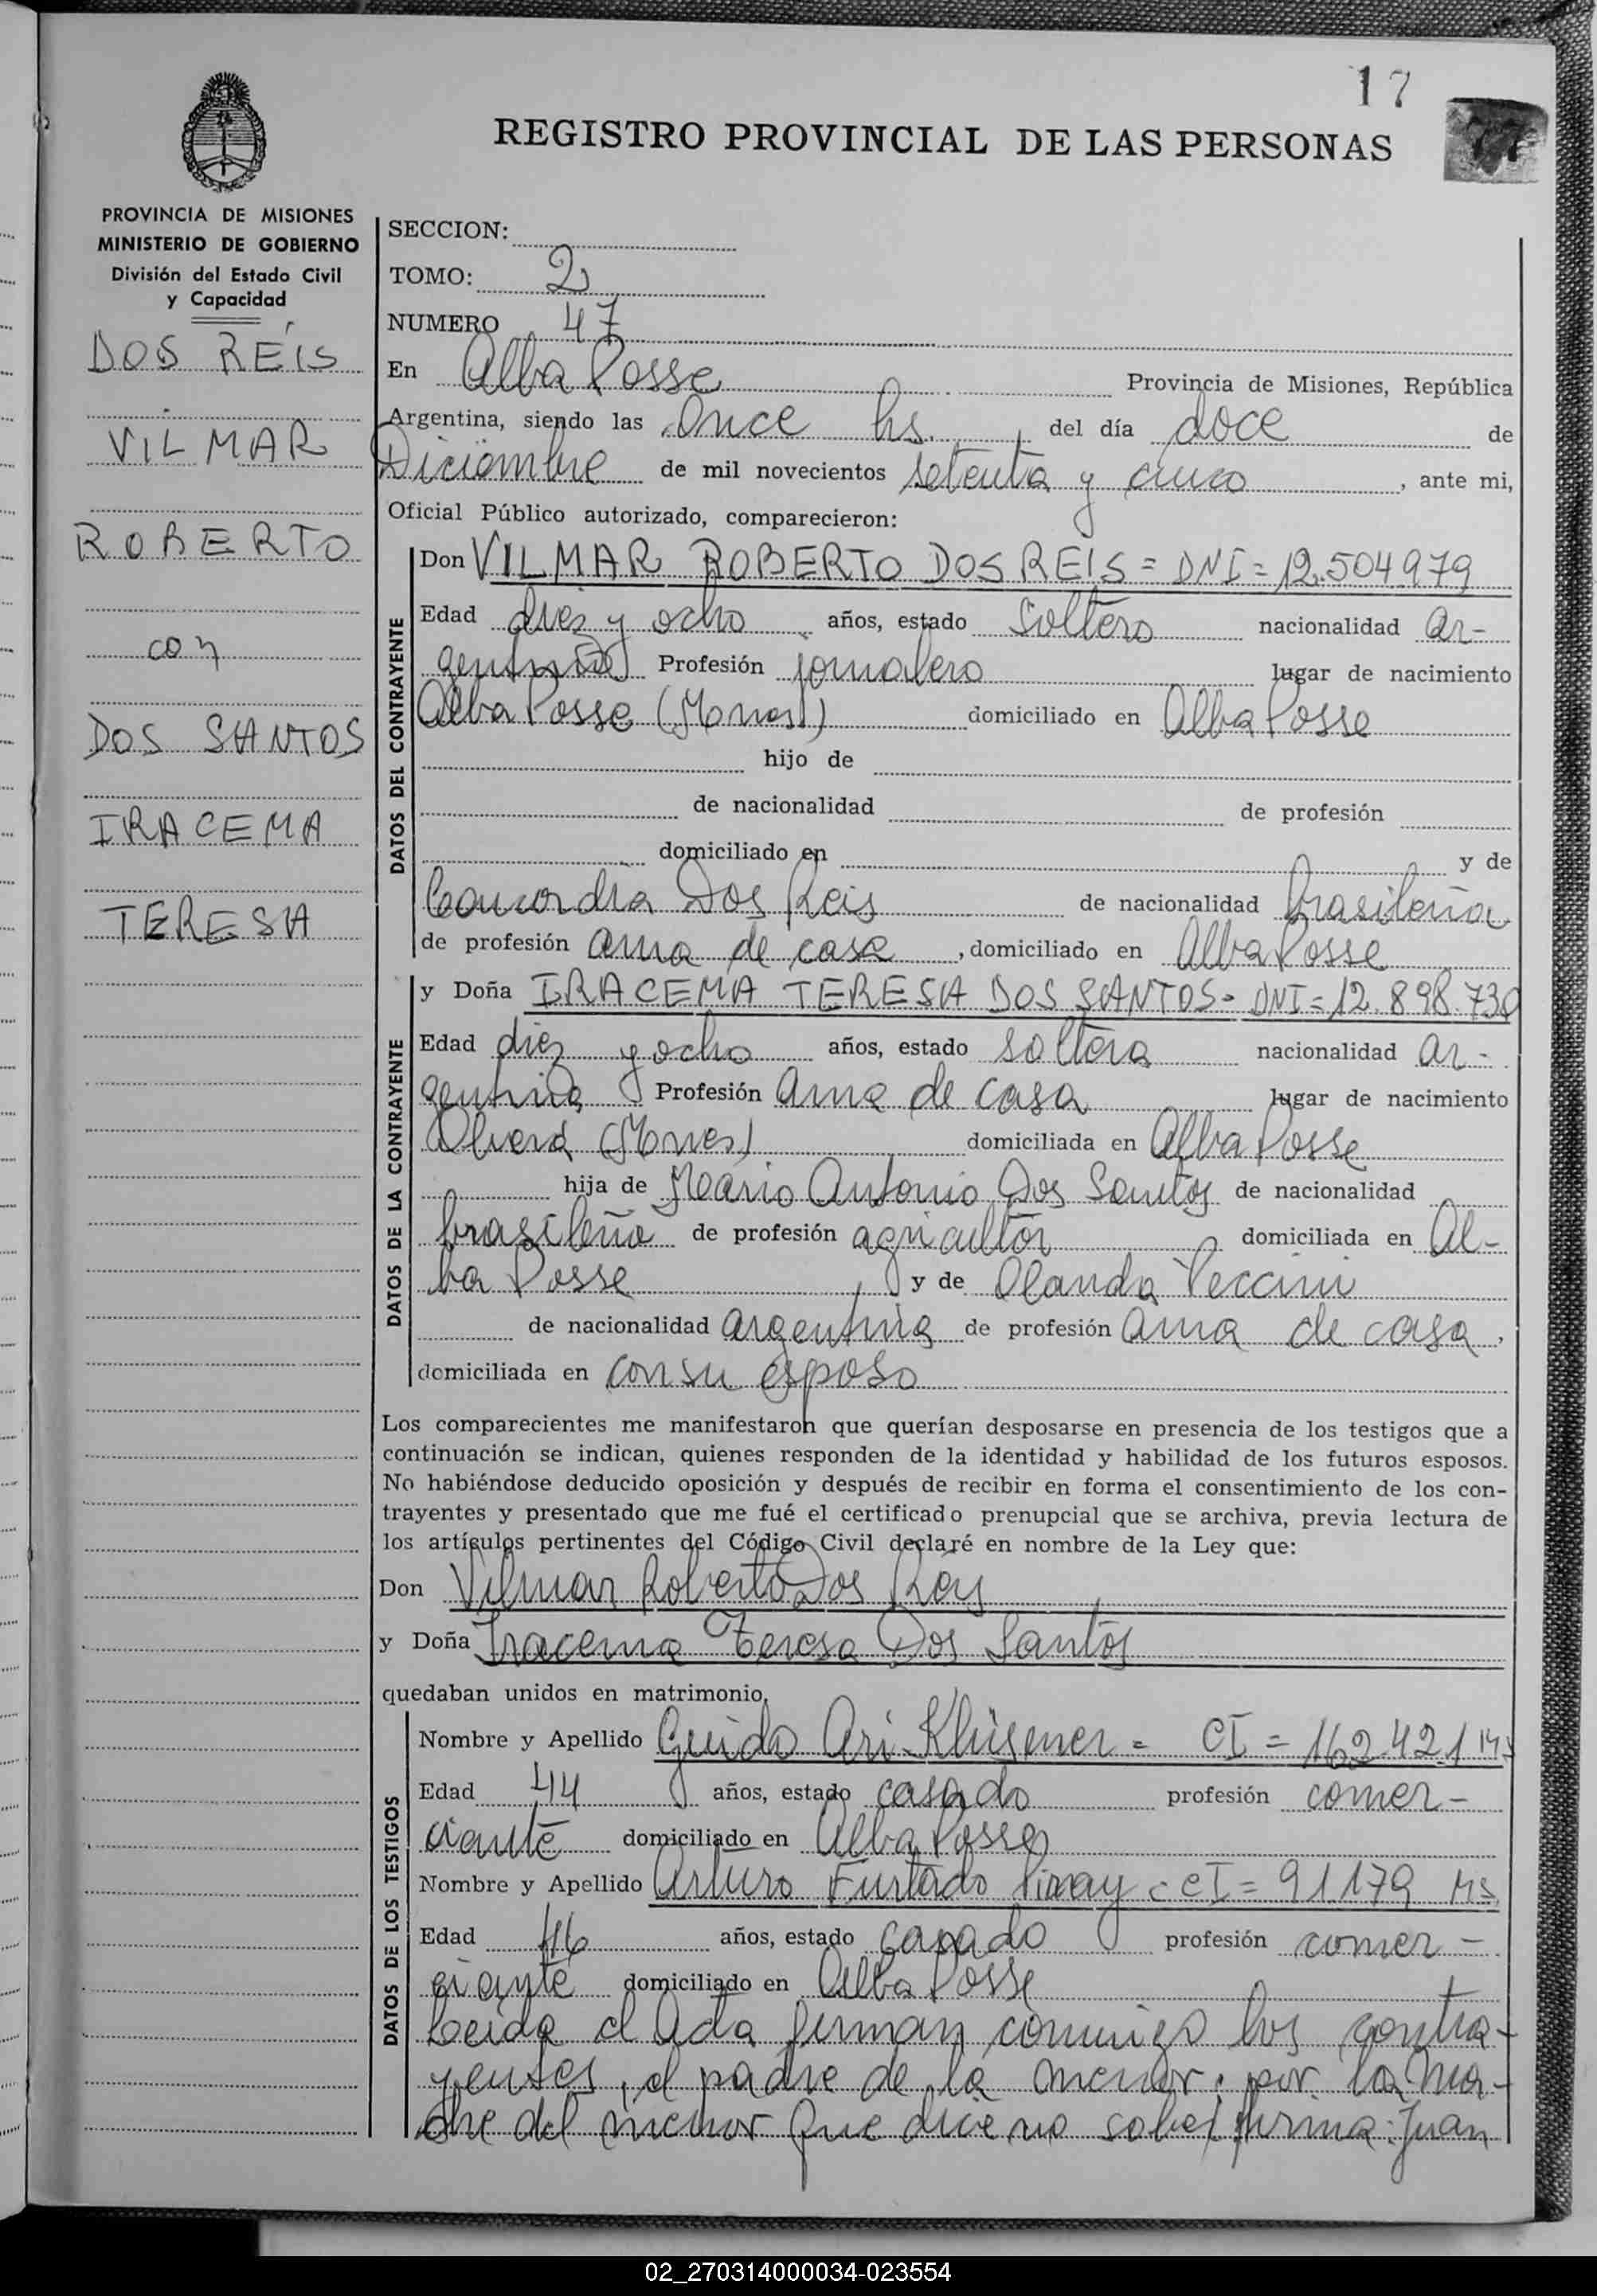 17
REGISTRO PROVINCIAL DE LAS PERSONAS
77
PROVINCIA DE MISIONES
MINISTERIO DE GOBIERNO
División del Estado Civil
y Capacidad
DOS REIS
VILMAR
ROBERTO
con
DOS SANTOS
IRACEMA
TERESA
SECCION:
TOMO: 2
NUMERO 47
En Alba Posse Provincia de Misiones, República
Argentina, siendo las Once hs. del día doce de
Diciembre de mil novecientos setenta y cinco, ante mi,
Oficial Público autorizado, comparecieron:
DATOS DEL CONTRAYENTE
Don VILMAR ROBERTO DOS REIS = DNI = 12.504979
Edad diez y ocho años, estado Soltero nacionalidad ar-
gentina Profesión jornalero lugar de nacimiento
Alba Posse (Mones) domiciliado en Alba Posse
hijo de
de nacionalidad de profesión
domiciliado en y de
Concordia Dos Reis de nacionalidad brasileña
de profesión ama de casa, domiciliado en Alba Posse
DATOS DE LA CONTRAYENTE
y Doña IRACEMA TERESA DOS SANTOS = DNI = 12.898.730
Edad diez y ocho años, estado soltera nacionalidad ar-
gentina Profesión Ama de casa lugar de nacimiento
(Mones) domiciliada en Alba Posse
hija de Mario Antonio Dos Santos de nacionalidad
brasileño de profesión agricultor domiciliada en Al-
ba Posse y de Olanda Peccini
de nacionalidad argentina de profesión ama de casa,
domiciliada en con su esposo
Los comparecientes me manifestaron que querían desposarse en presencia de los testigos que a
continuación se indican, quienes responden de la identidad y habilidad de los futuros esposos.
No habiéndose deducido oposición y después de recibir en forma el consentimiento de los con-
trayentes y presentado que me fué el certificado prenupcial que se archiva, previa lectura de
los artículos pertinentes del Código Civil declaré en nombre de la Ley que:
Don Vilmar Roberto Dos Reis
y Doña Iracema Teresa Dos Santos
quedaban unidos en matrimonio.
DATOS DE LOS TESTIGOS
Nombre y Apellido Guido Ari Klüsener = CI = 162.421 Ms
Edad 44 años, estado casado profesión comer-
ciante domiciliado en Alba Posse
Nombre y Apellido Arturo Furtado = CI = 91179 Ms
Edad 46 años, estado casado profesión comer-
ciante domiciliado en Alba Posse
Leida el Acta firman conmigo los contra-
yentes, el padre de la menor; por la ma-
dre del menor que dice no saber firma: Juan
02_270314000034-023554